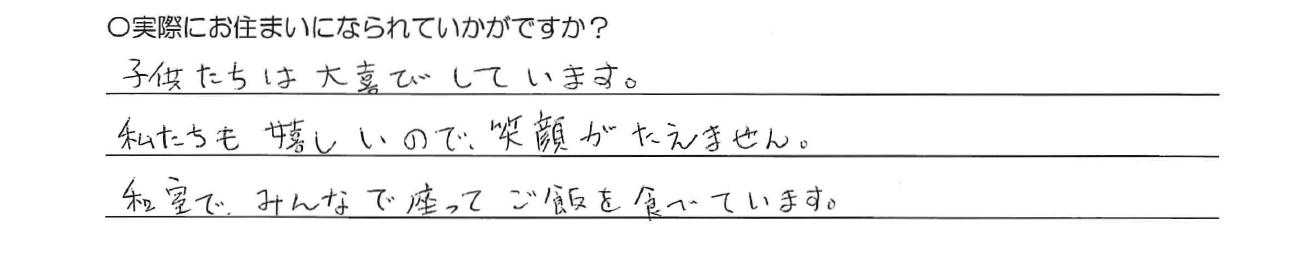 〇実際にお住まいになられていかがですか？
子供たちは大喜びしています。
私たちも嬉しいので、笑顔がたえません。
和室で、みんなで座ってご飯を食べています。